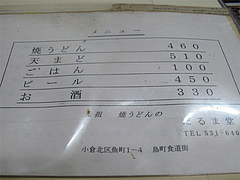 メニュー
焼うどん 460
天まど 510
ごはん 100
ビール 450
お酒 330
元祖 焼うどんの
だるま堂
TEL 531-640
小倉北区魚町1-4 鳥町食道街